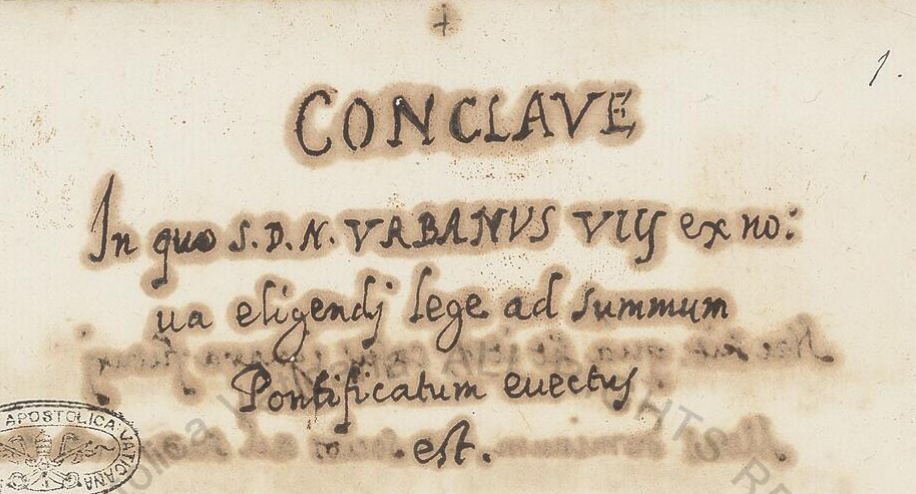 +
1.
CONCLAVE
In quo S.D.N. VRBANVS VIIJ ex no:
ua eligendj lege ad summum
Pontificatum euectus
est.
APOSTOLICA VATICANA